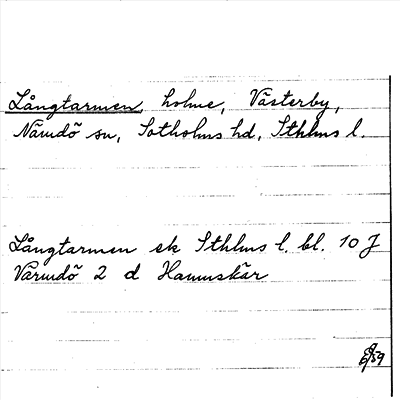 Långtarmen, holme, Västerby,
Nämdö sn, Sotholms hd, Sthlms l.
Långtarmen ek Sthlms l. bl. 10 J
Värmdö 2 d Hammskär
59